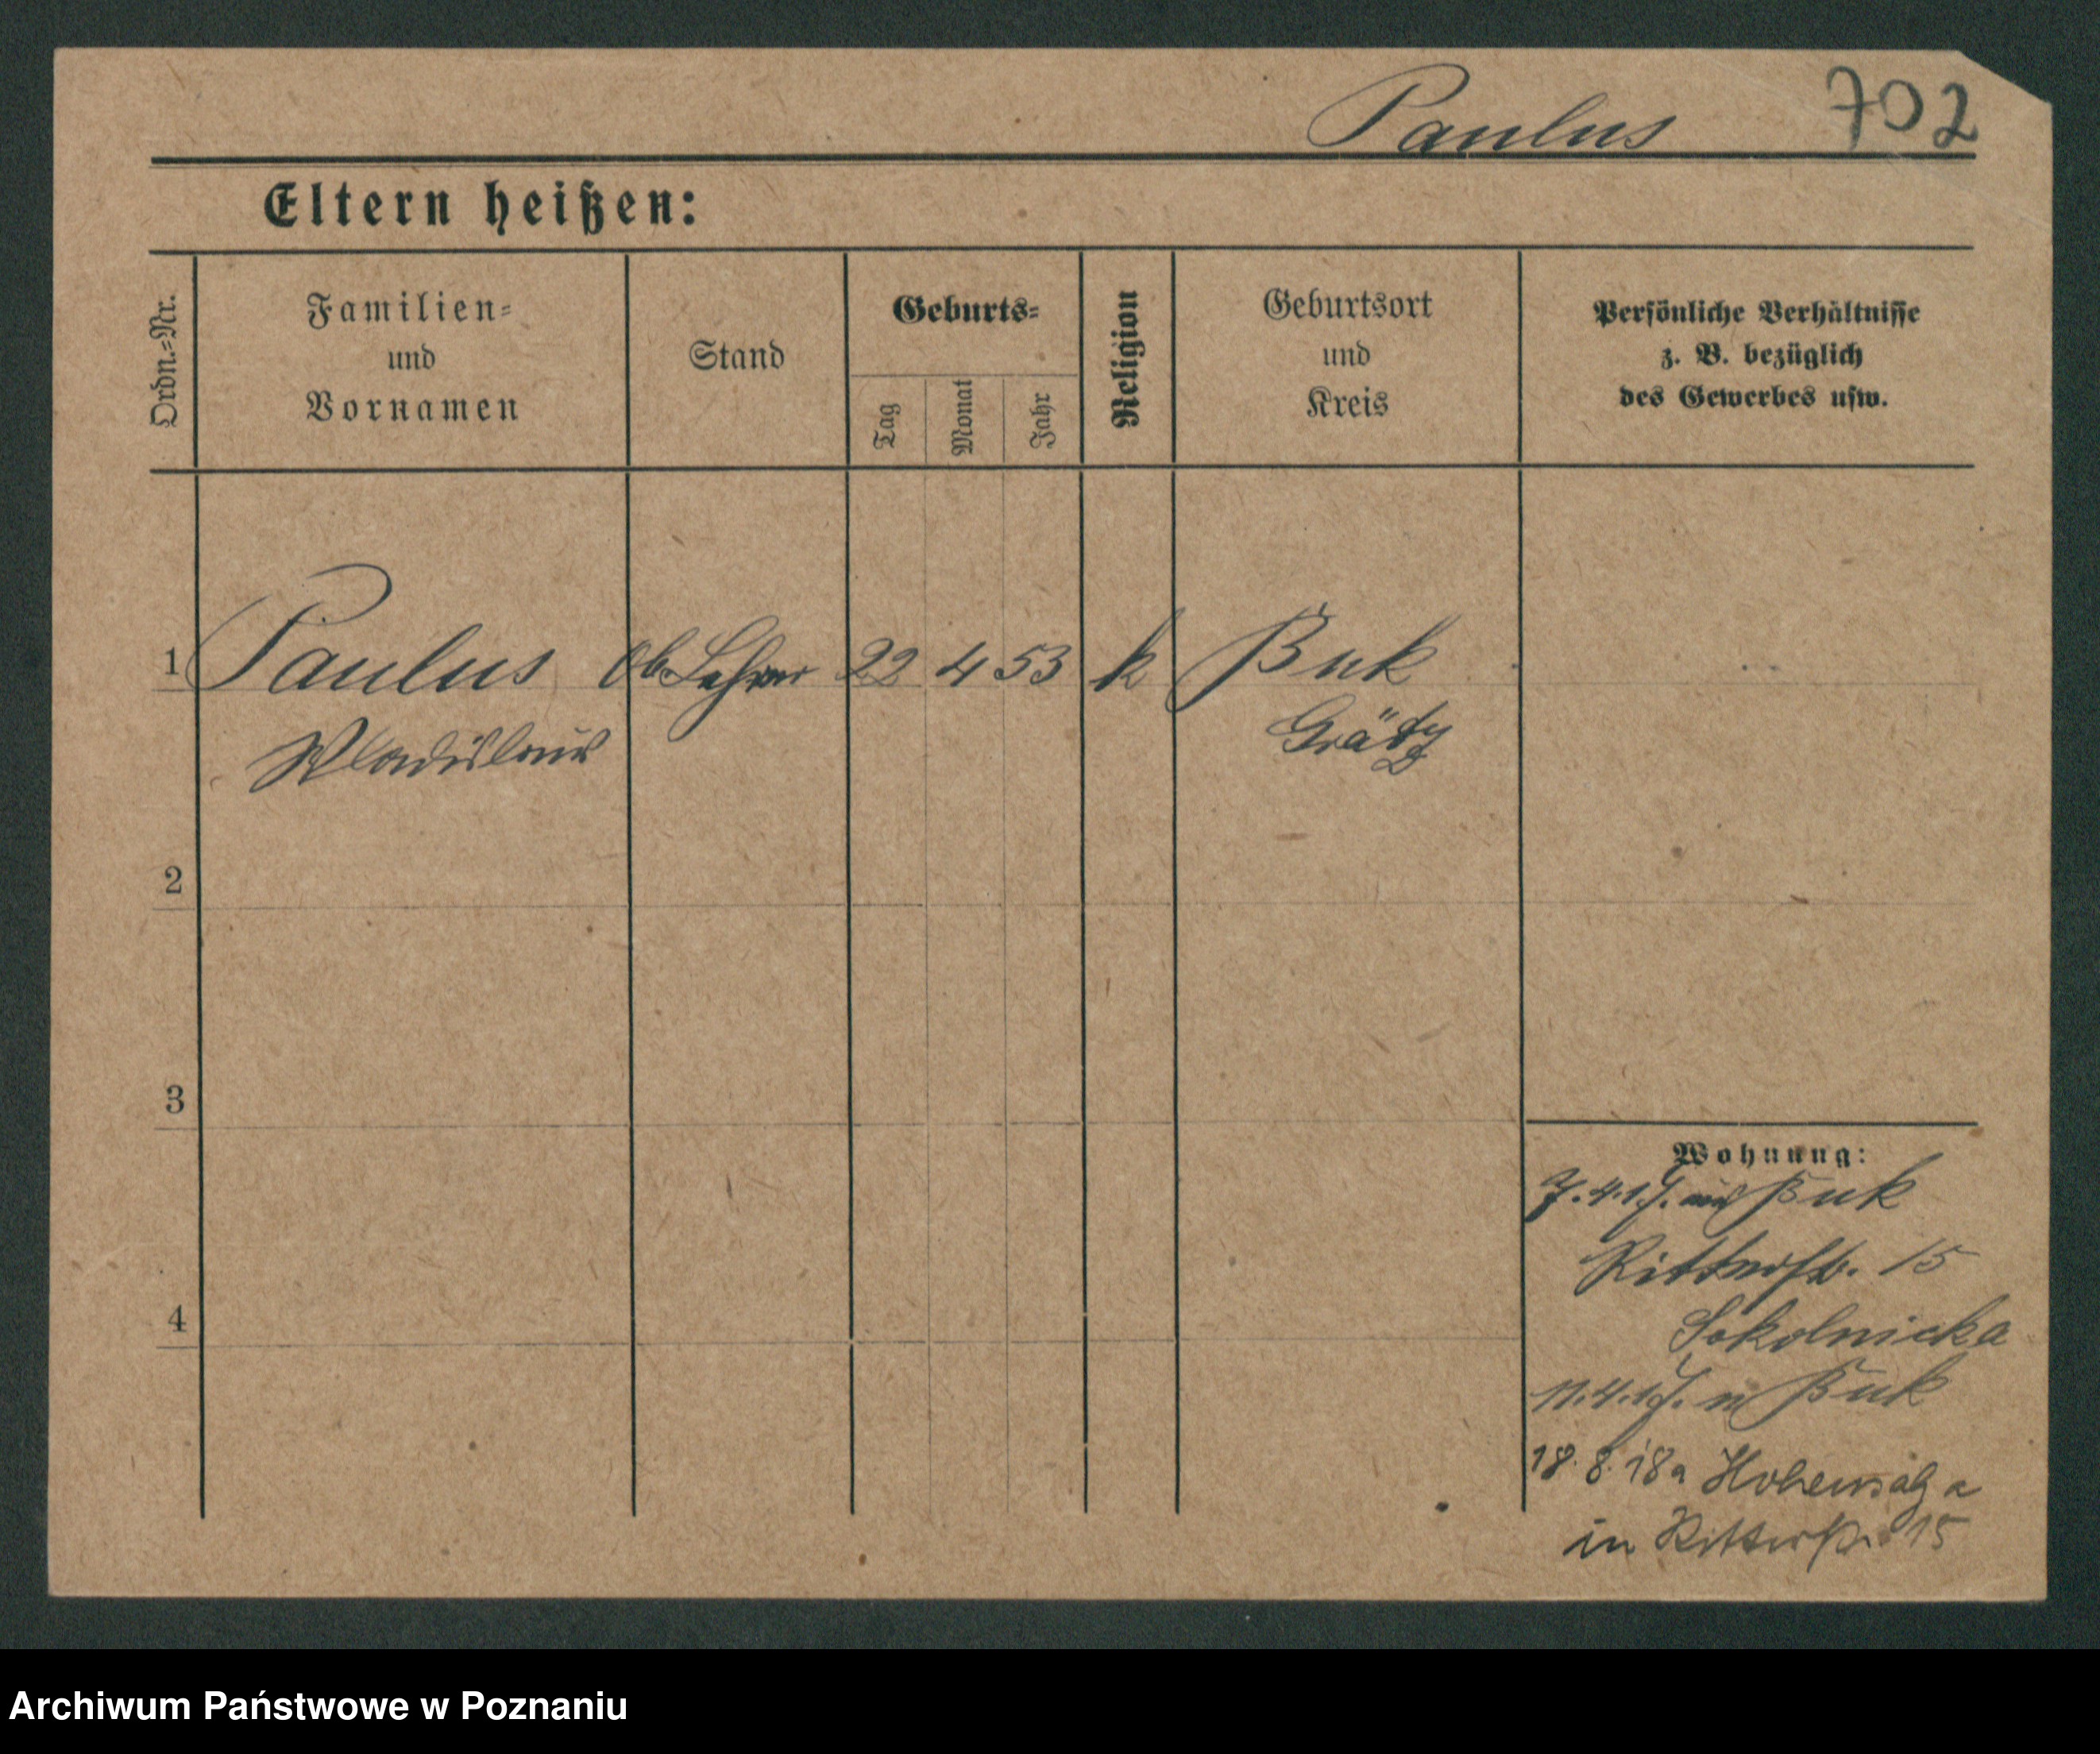 Paulus 702
Eltern heißen:
Ordn.=Nr.
Familien=
und
Vornamen
Stand
Geburts=
Tag
Monat
Jahr
Religion
Geburtsort
und
Kreis
Persönliche Verhältnisse
z. B. bezüglich
des Gewerbes usw.
1 Paulus Ob. Lehrer 22 4 53 k Buk
Wladislaus Grätz
2
3
4
Wohnung:
7.4.17. Buk
Ritterstr. 15
Sokolnicka
11.4.17. n Buk
18.8.18 a Hohensalza
in Ritterstr. 15
Archiwum Państwowe w Poznaniu